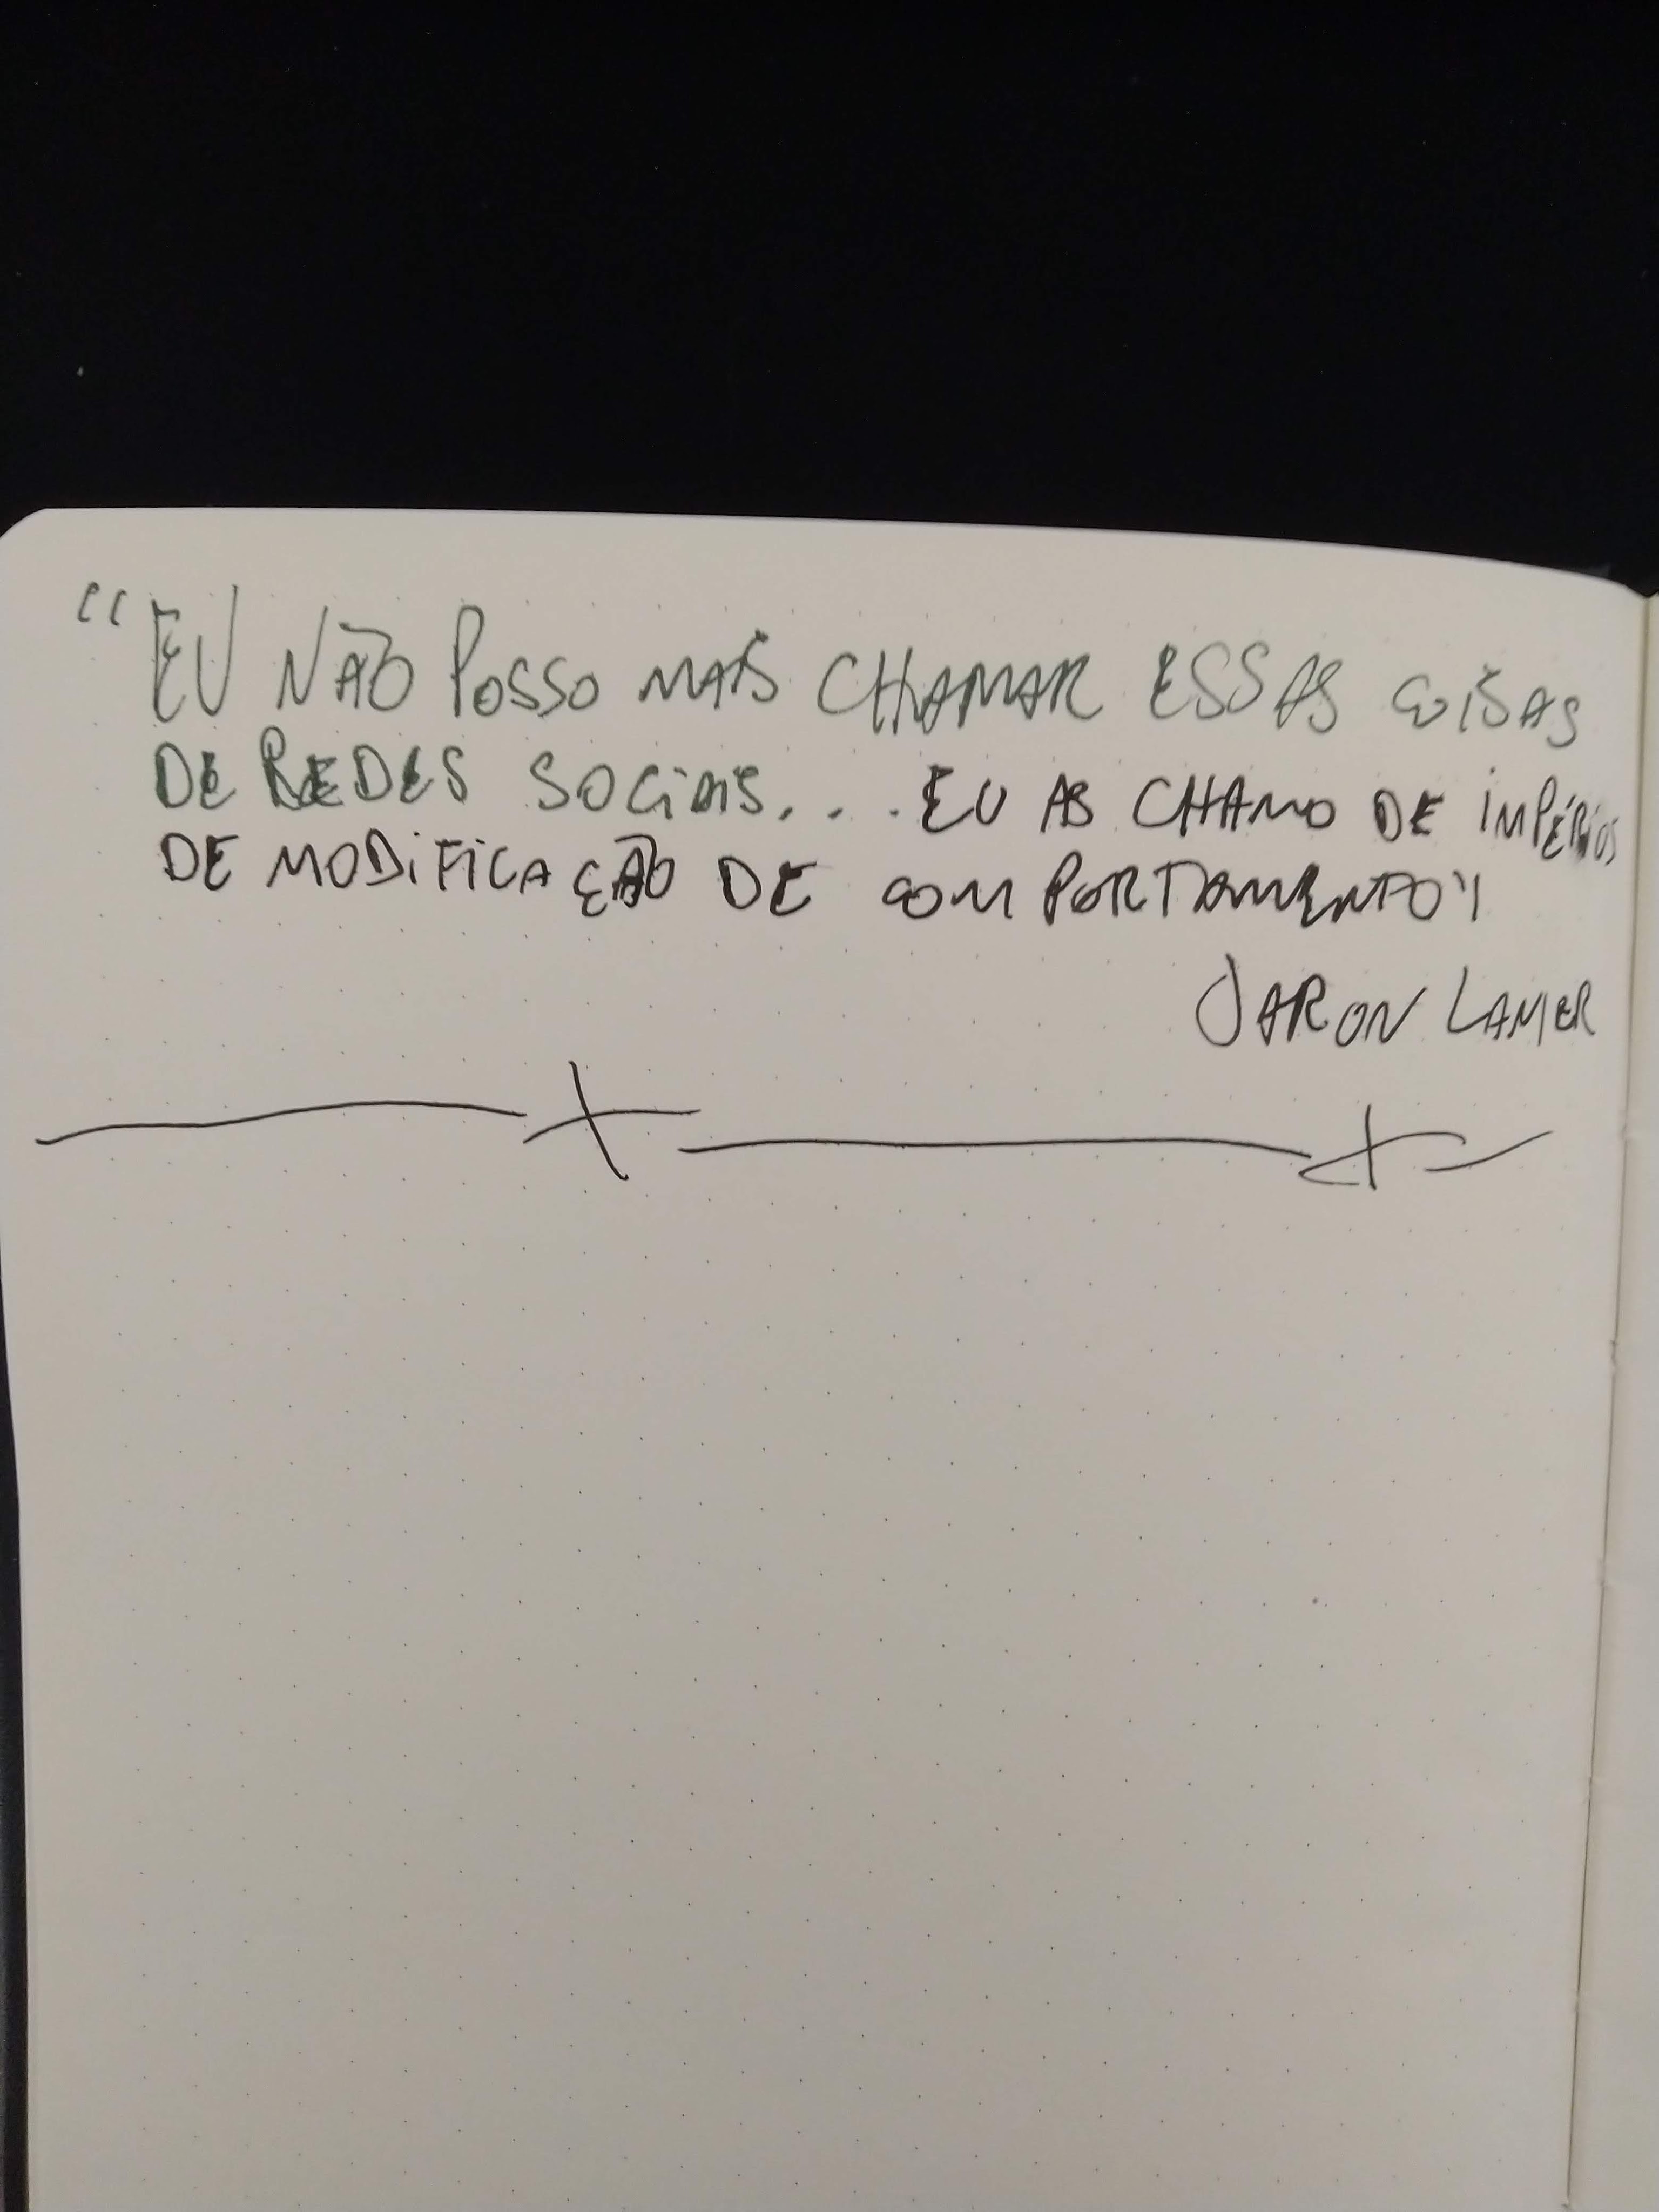 “EU NÃO POSSO MAIS CHAMAR ESSAS COISAS
DE REDES SOCIAIS... EU AS CHAMO DE IMPÉRIOS
DE MODIFICAÇÃO DE COMPORTAMENTO”
JARON LANIER